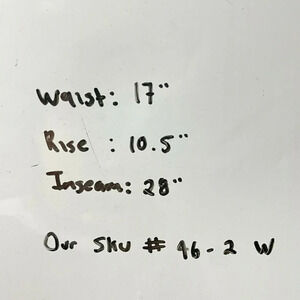 Waist: 17"
Rise : 10.5"
Inseam: 28"
Our Sku # 46-2 W